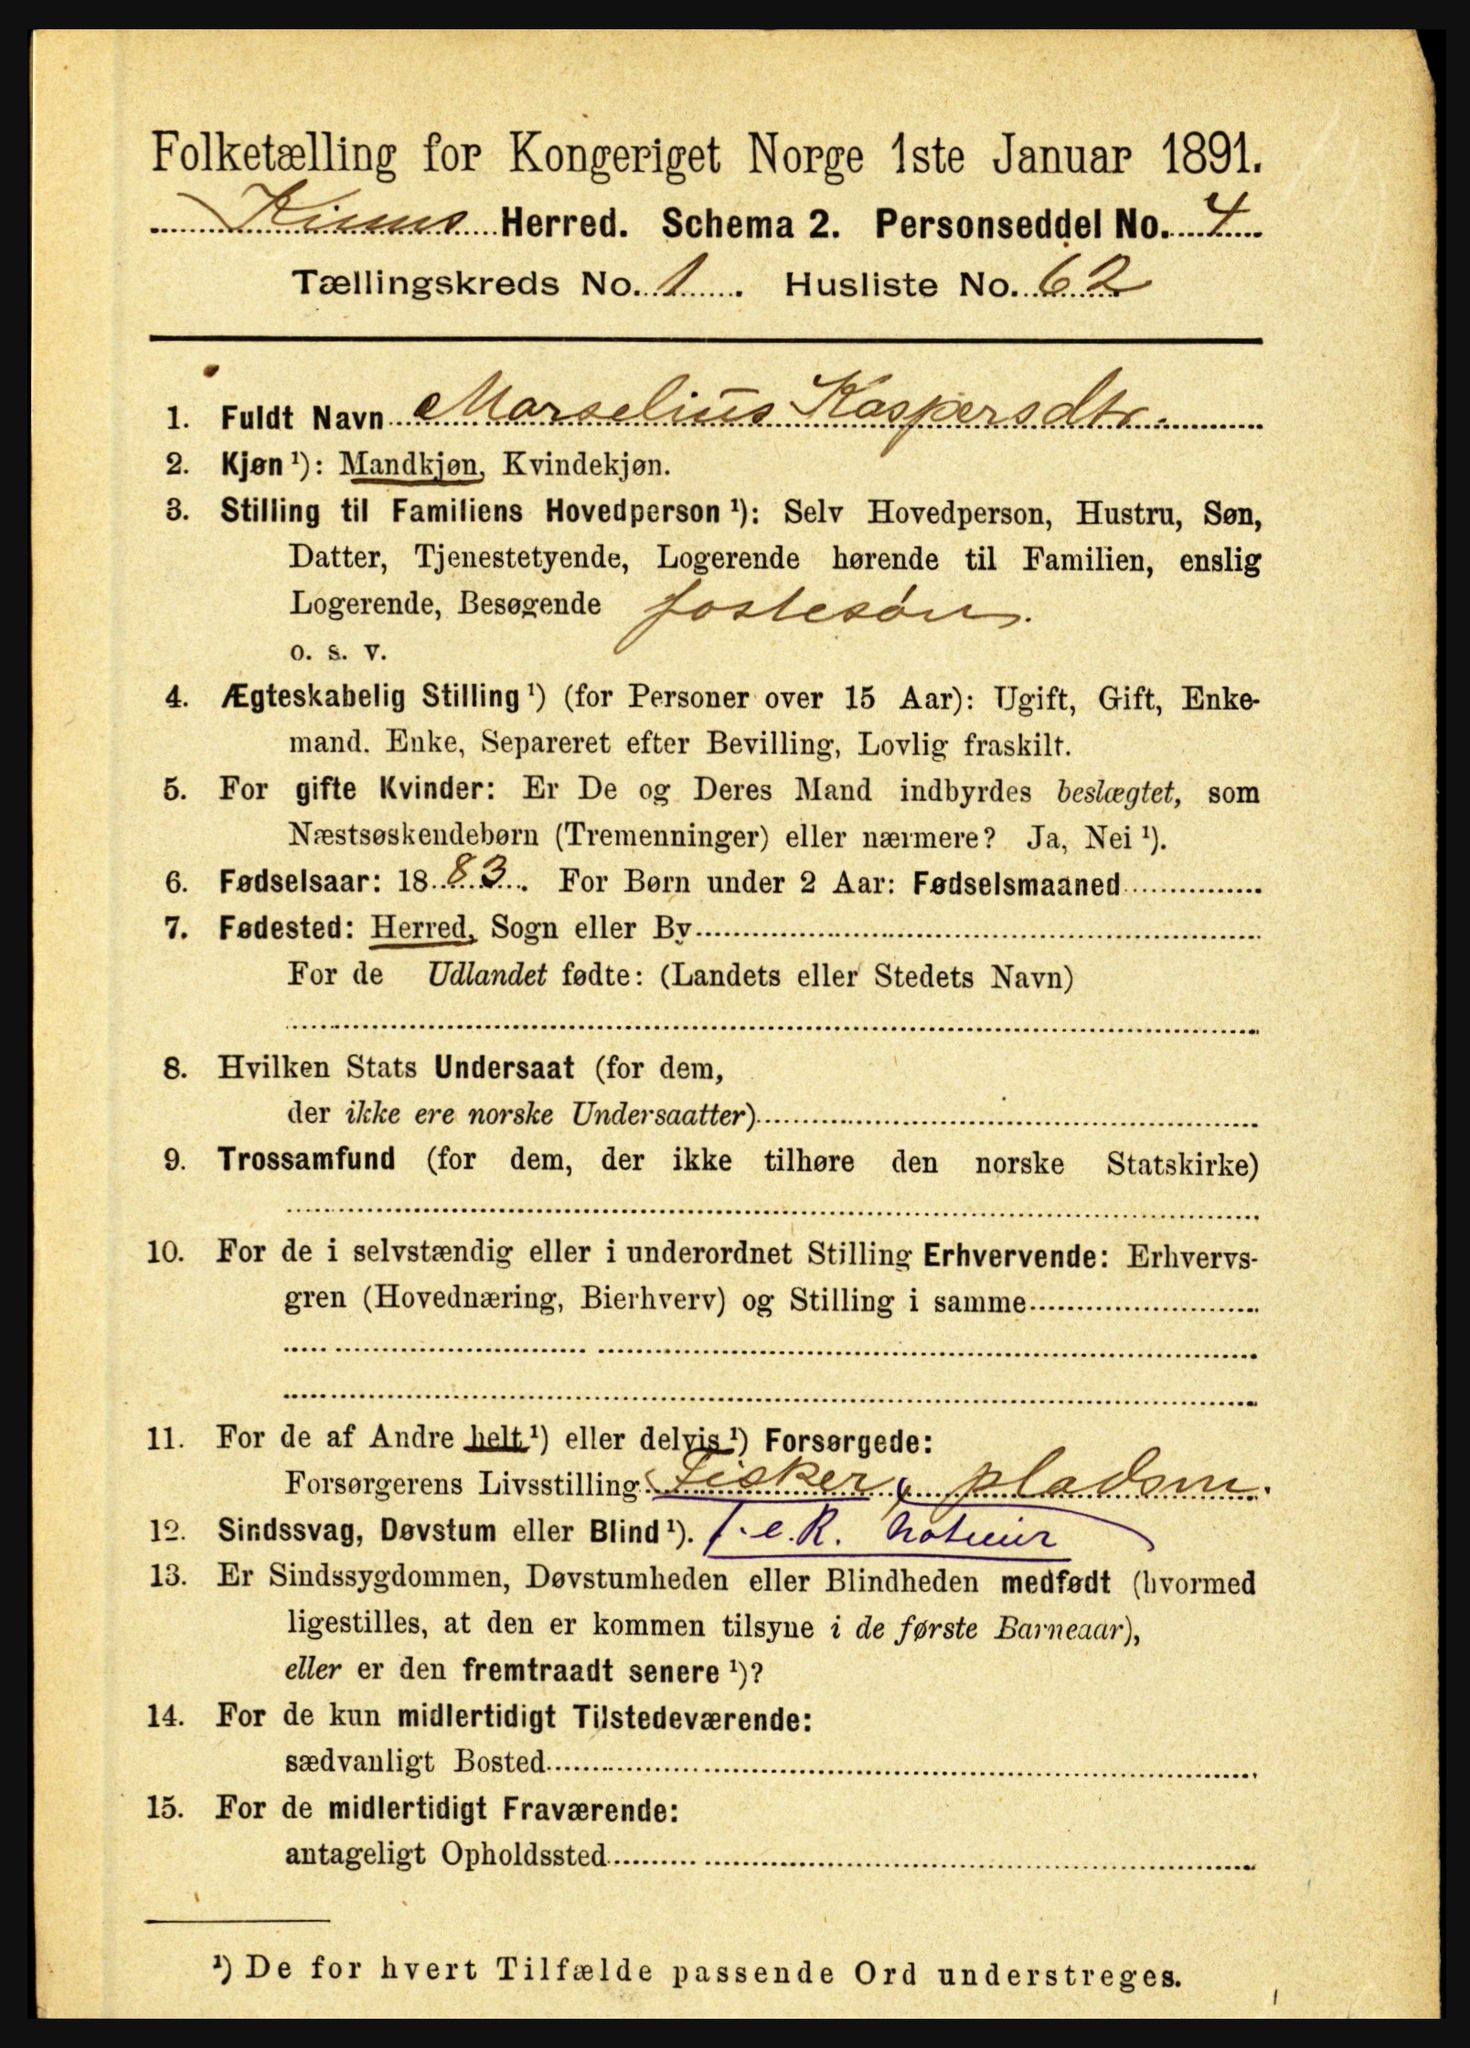 Folketælling for Kongeriget Norge 1ste Januar 1891.
Kinns Herred. Schema 2. Personseddel No. 4
Tællingskreds No. 1. Husliste No. 62
1. Fuldt Navn Marselius Kaspersdtr.
2. Kjøn ¹): Mandkjøn, Kvindekjøn.
3. Stilling til Familiens Hovedperson ¹): Selv Hovedperson, Hustru, Søn,
Datter, Tjenestetyende, Logerende hørende til Familien, enslig
Logerende, Besøgende fostesøn.
o. s. v.
4. Ægteskabelig Stilling ¹) (for Personer over 15 Aar): Ugift, Gift, Enke-
mand. Enke, Separeret efter Bevilling, Lovlig fraskilt.
5. For gifte Kvinder: Er De og Deres Mand indbyrdes beslægtet, som
Næstsøskendebørn (Tremenninger) eller nærmere? Ja, Nei ¹).
6. Fødselsaar: 1883. For Børn under 2 Aar: Fødselsmaaned
7. Fødested: Herred, Sogn eller By
For de Udlandet fødte: (Landets eller Stedets Navn)
8. Hvilken Stats Undersaat (for dem,
der ikke ere norske Undersaatter)
9. Trossamfund (for dem, der ikke tilhøre den norske Statskirke)
10. For de i selvstændig eller i underordnet Stilling Erhvervende: Erhvervs-
gren (Hovednæring, Bierhverv) og Stilling i samme
11. For de af Andre helt ¹) eller delvis ¹) Forsørgede:
Forsørgerens Livsstilling Fisker, pladsm.
12. Sindssvag, Døvstum eller Blind ¹). f. e. R.
13. Er Sindssygdommen, Døvstumheden eller Blindheden medfødt (hvormed
ligestilles, at den er kommen tilsyne i de første Barneaar),
eller er den fremtraadt senere ¹)?
14. For de kun midlertidigt Tilstedeværende:
sædvanligt Bosted
15. For de midlertidigt Fraværende:
antageligt Opholdssted
¹) De for hvert Tilfælde passende Ord understreges.